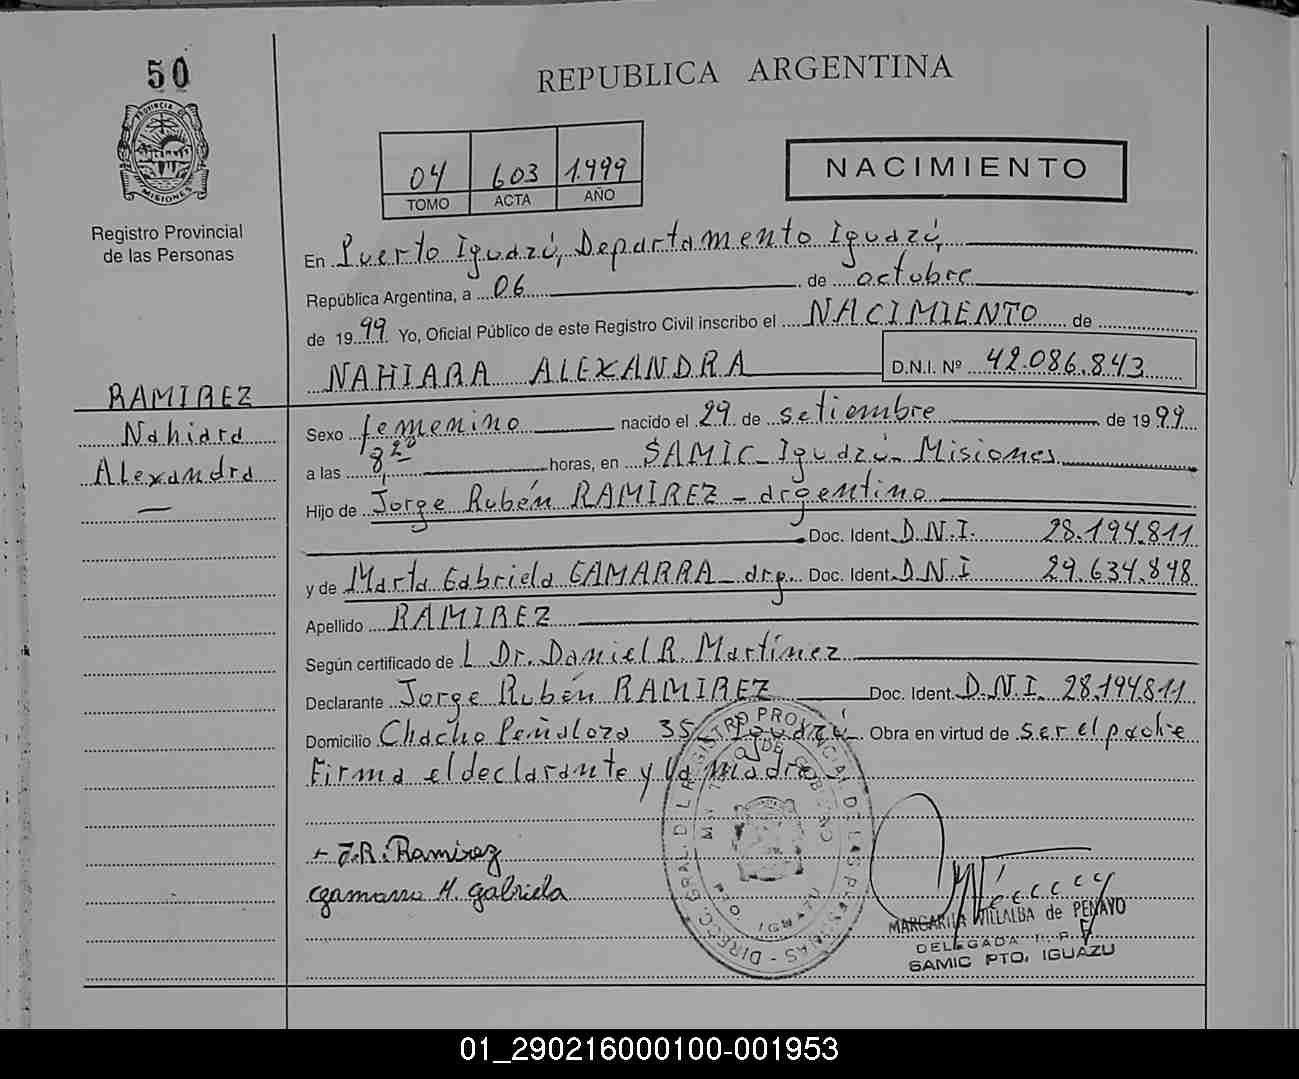 50
REPUBLICA ARGENTINA
PROVINCIA DE MISIONES
Registro Provincial
de las Personas
04 603 1.999
TOMO ACTA AÑO
NACIMIENTO
En Puerto Iguazú, Departamento Iguazú,
República Argentina, a 06 de octubre
de 1999 Yo, Oficial Público de este Registro Civil inscribo el NACIMIENTO de
NAHIARA ALEXANDRA D.N.I. Nº 42.086.843
RAMIREZ
Nahiara
Alexandra
Sexo femenino nacido el 29 de setiembre de 1999
a las 8 20 horas, en SAMIC - Iguazú - Misiones
Hijo de Jorge Rubén RAMIREZ - argentino
Doc. Ident. D.N.I. 28.194.811
y de Marta Gabriela GAMARRA - arg. Doc. Ident. D.N.I 29.634.848
Apellido RAMIREZ
Según certificado de L Dr. Daniel R. Martínez
Declarante Jorge Rubén RAMIREZ Doc. Ident. D.N.I. 28.194.811
Domicilio Chacho Peñaloza 35 - Iguazú - Obra en virtud de ser el padre
Firma el declarante y la madre -
DIRECC. GRAL. DEL REGISTRO PROVINCIAL DE LAS PERSONAS
DE GOBIERNO
PTO. IGUAZU
J.R. Ramirez
Gamarra M. Gabriela
MARGARITA VILLALBA de PENAYO
DELEGADA R. P.
SAMIC PTO. IGUAZU
01_290216000100-001953